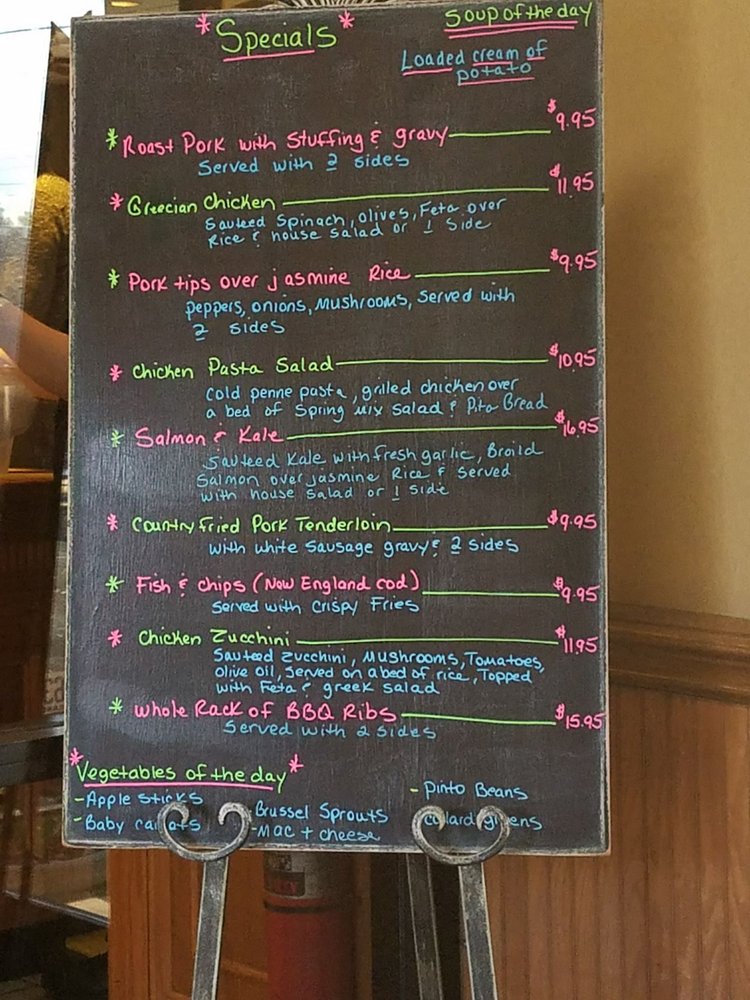 *Specials*
Soup of the day
Loaded cream of
potato
* Roast Pork with Stuffing & gravy $9.95
Served with 2 sides
* Greecian Chicken $11.95
Sauteed Spinach, olives, Feta over
Rice & house salad or 1 Side
* Pork tips over jasmine Rice $9.95
peppers, onions, mushrooms, served with
2 sides
* Chicken Pasta Salad $10.95
cold penne pasta, grilled chicken over
a bed of Spring mix salad & Pita Bread
* Salmon & Kale $16.95
Sauteed Kale with fresh garlic, Broild
Salmon over jasmine Rice & Served
with house salad or 1 side
* Country Fried Pork Tenderloin $9.95
with white sausage gravy & 2 sides
* Fish & chips (New England cod) $9.95
served with crispy Fries
* Chicken Zucchini $11.95
Sauteed Zucchini, Mushrooms, Tomatoes,
olive oil, served on a bed of rice, Topped
with Feta & greek salad
* Whole Rack of BBQ Ribs $15.95
Served with 2 sides
*Vegetables of the day*
- Apple sticks
- Baby carrots
Brussel Sprouts
- Mac + cheese
- Pinto Beans
collard greens